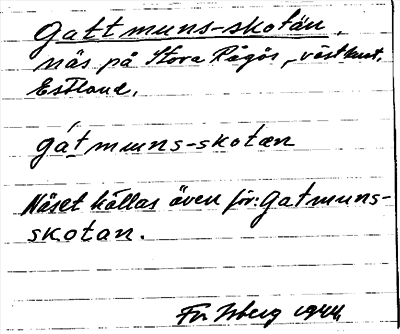 Gattmuns-skotan,
näs på Stora Rågös västkust,
Estland.
gátmuns-skotan
Näset kallas även för: Gatmuns-
skotan.
Isberg 1944